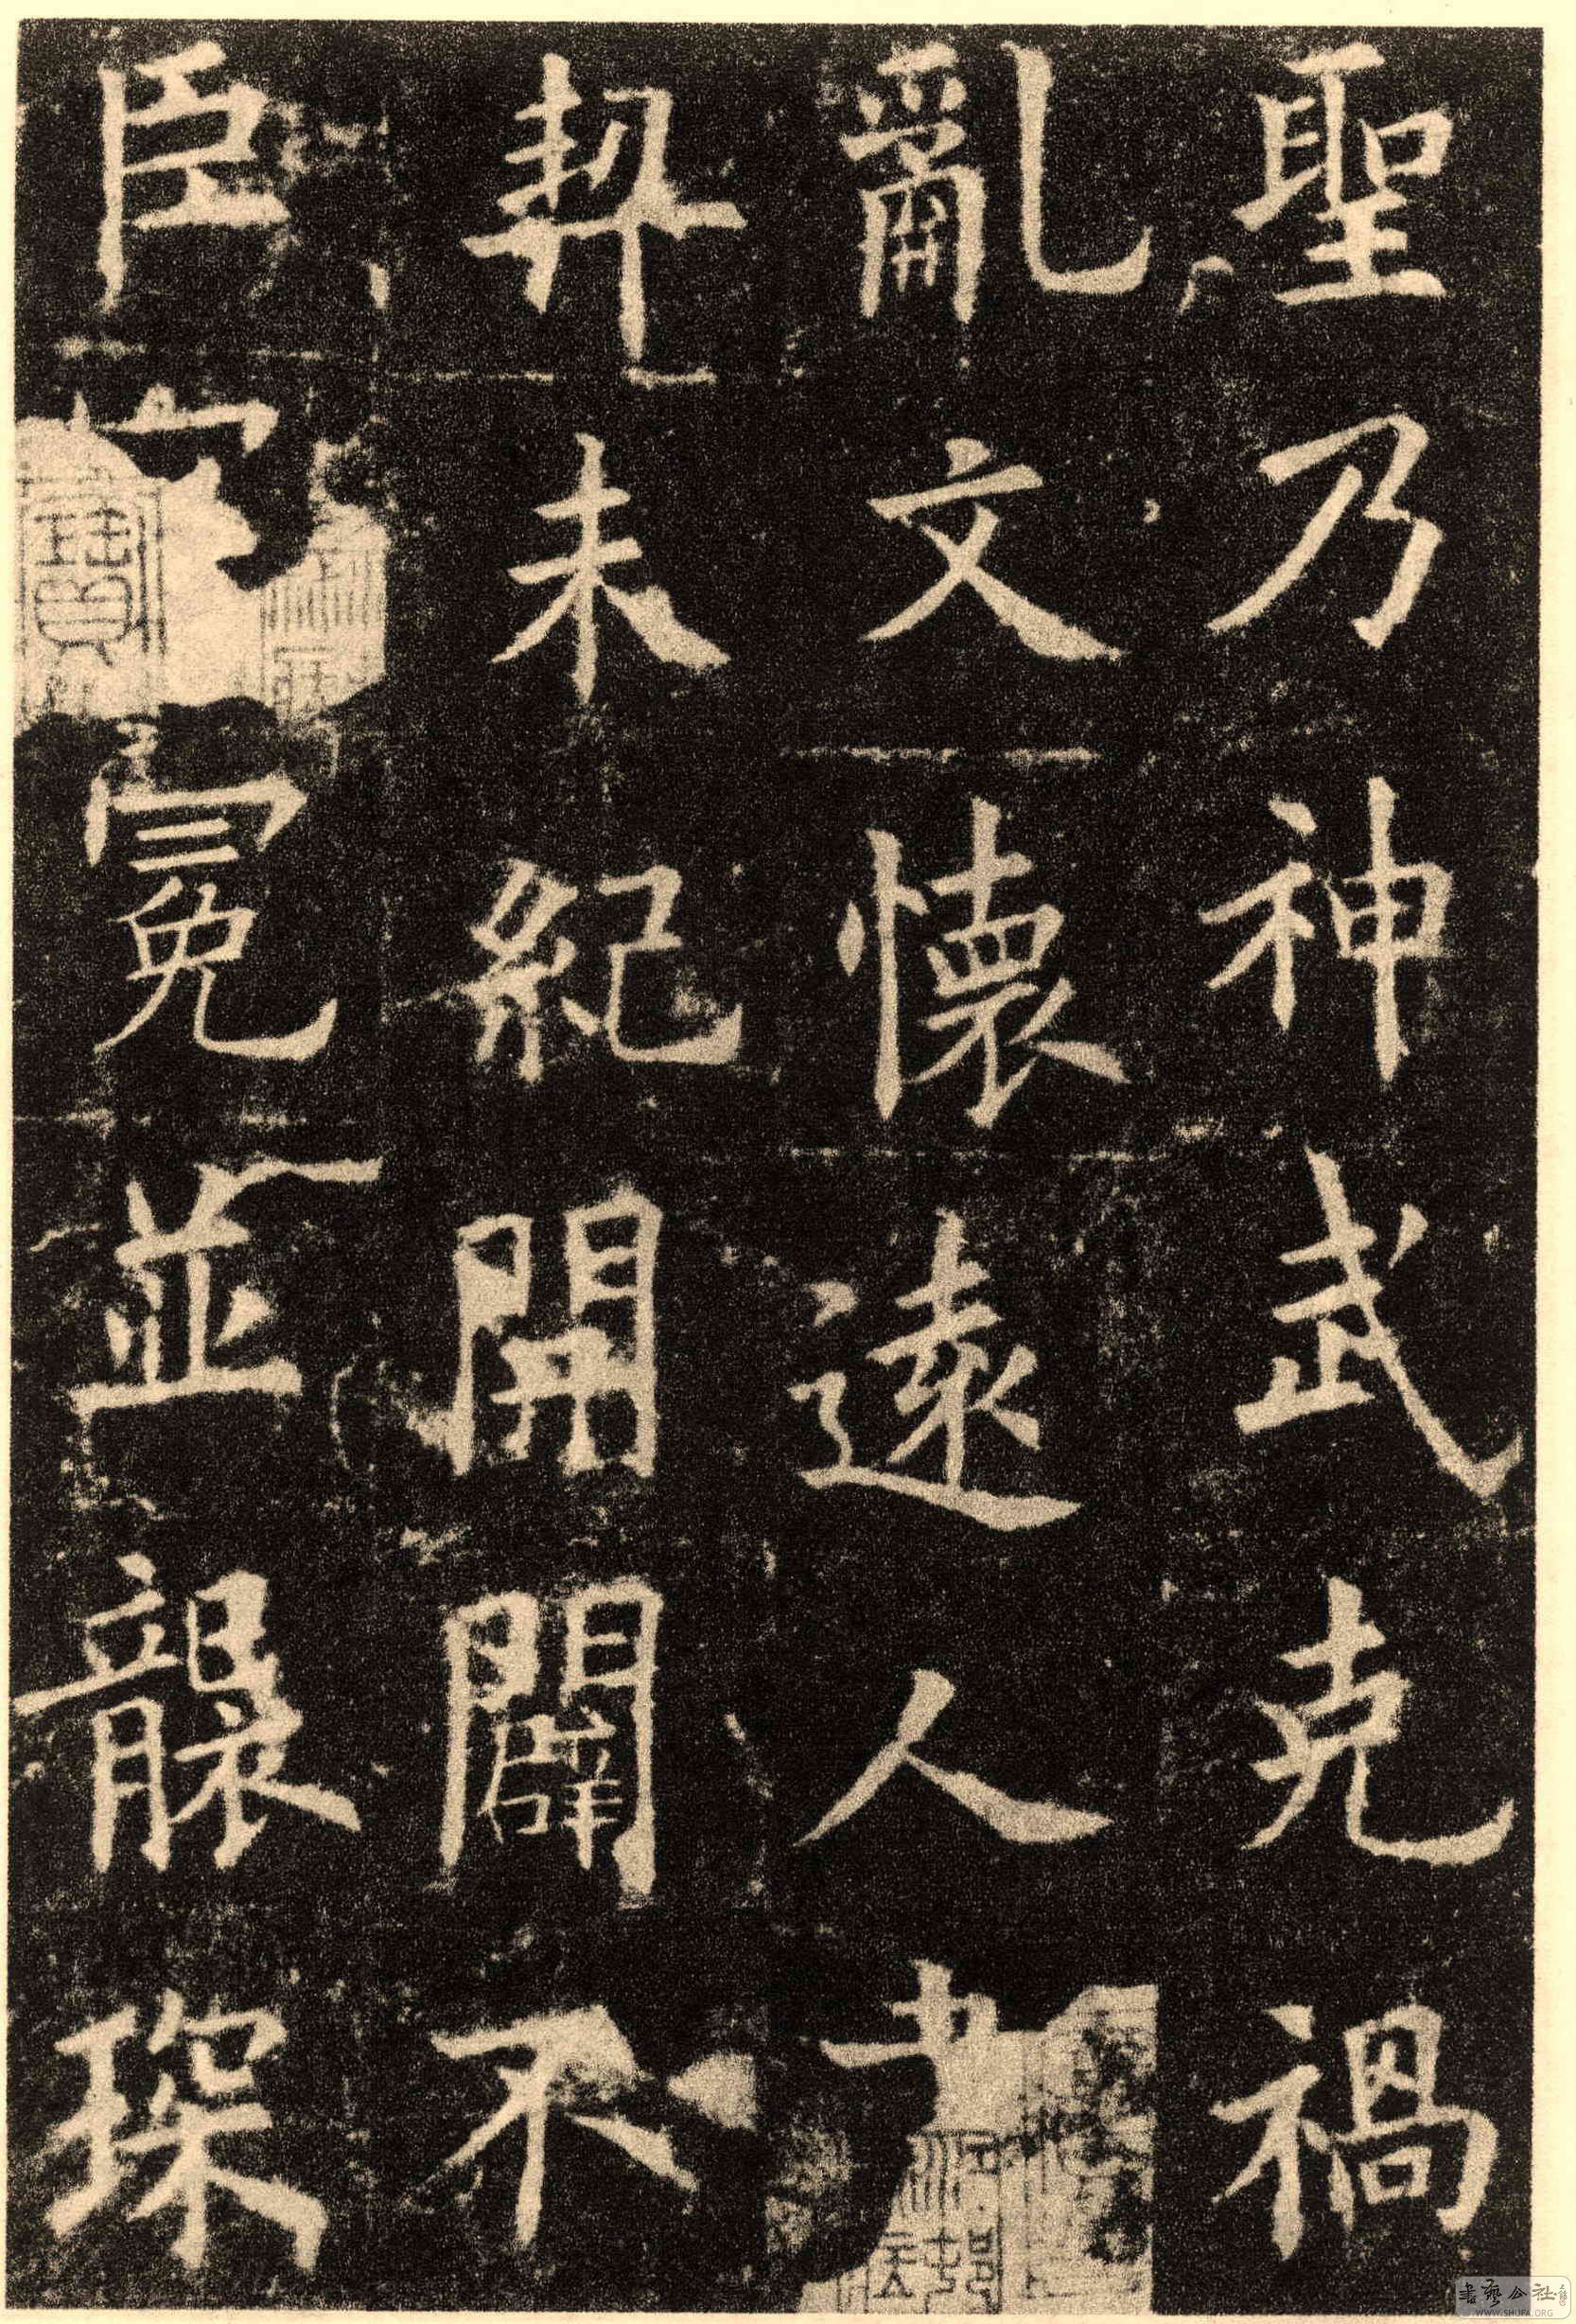 聖乃神武克禍
亂文懷遠人
契未紀開闢不
臣冠冕並襲琛
書藝公社
WWW.SHUFA.ORG